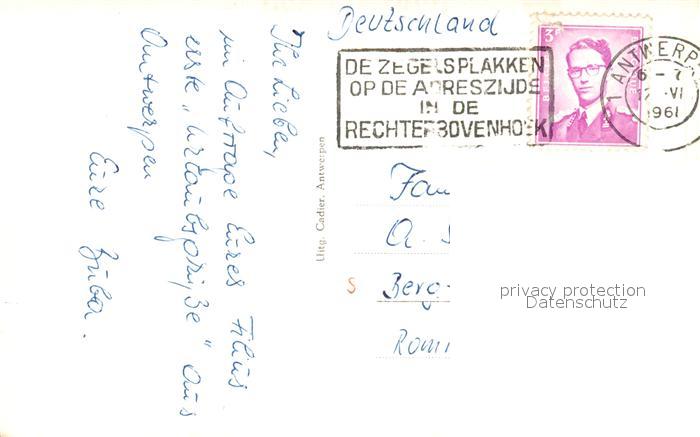 Deutschland
DE ZEGELS PLAKKEN
OP DE ADRESZIJDE
IN DE
RECHTERBOVENHOEK
3F
ANTWERP
6 - 7
VI
1961
Ihr Lieben,
im Auftrage Eures Filius
erste „Urlaubsgrüße" aus
Antwerpen
Eure
Uitg. Cadier, Antwerpen
Fam
A.
Berg-
privacy protection
Datenschutz